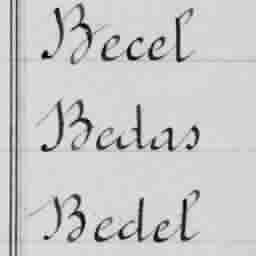 Becel
Bedas
Bedel